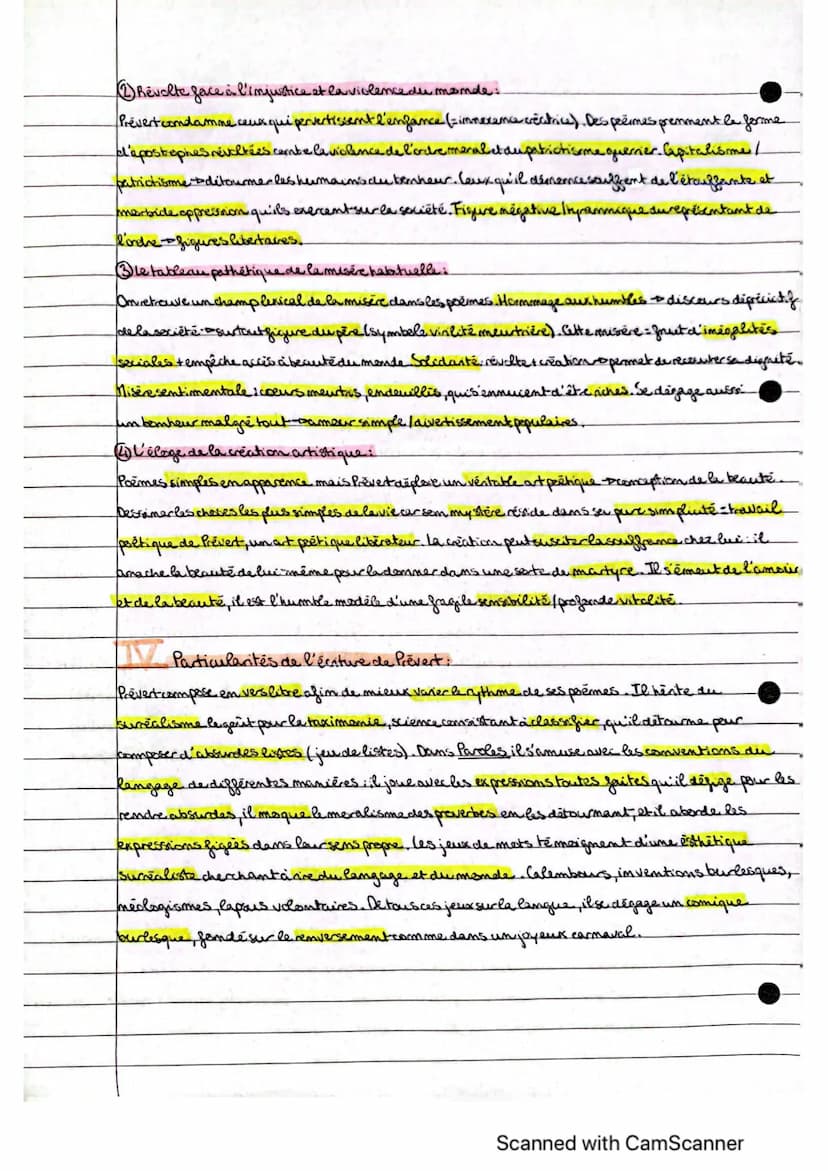 ② Révolte face à l'injustice et la violence du monde :
Prévert condamne ceux qui pervertissent l'enfance (= innocence créatrice). Des poèmes prennent la forme
d'apostrophes révoltées contre la violence de l'ordre moral et du patriotisme guerrier. Capitalisme /
patriotisme → détourner les humains du bonheur. Ceux qu'il dénonce souffrent de l'étouffante et
morbide oppression qu'ils exercent sur la société. Figure négative / tyrannique du représentant de
l'ordre → figures libertaires.
③ Le tableau pathétique de la misère habituelle :
On retrouve un champ lexical de la misère dans les poèmes. Hommage aux humbles → discours dépréciatif
de la société → surtout figure du père (symbole virilité meurtrière). Cette misère = fruit d'inégalités
sociales + empêche accès à beauté du monde. Solidarité : révolte + création → permet de recouvrer sa dignité.
Misère sentimentale : coeurs meurtris, endeuillés, qui s'ennuient d'être riches. Se dégage aussi
un bonheur malgré tout → amour simple / divertissement populaires.
④ L'éloge de la création artistique :
Poèmes simples en apparence mais Prévert déploie un véritable art poétique → conception de la beauté.
Dessiner les choses les plus simples de la vie car son mystère réside dans sa pure simplicité = travail
poétique de Prévert, un art poétique libérateur. La création peut susciter la souffrance chez lui : il
arrache la beauté de lui-même pour la donner dans une sorte de martyre. Il s'émeut de l'amour
et de la beauté, il est l'humble modèle d'une fragile sensibilité / profonde vitalité.
IV Particularités de l'écriture de Prévert :
Prévert compose en vers libre afin de mieux varier le rythme de ses poèmes. Il hérite du
surréalisme le goût pour la taximonie, science consistant à classifier, qu'il détourne pour
composer d'absurdes listes (jeu de listes). Dans Paroles, il s'amuse avec les conventions du
langage de différentes manières : il joue avec les expressions toutes faites qu'il défige pour les
rendre absurdes, il moque le moralisme des proverbes en les détournant, et il aborde les
expressions figées dans leur sens propre. Les jeux de mots témoignent d'une esthétique
surréaliste cherchant à rire du langage et du monde. Calembours, inventions burlesques,
néologismes, lapsus volontaires. De tous ces jeux sur la langue, il se dégage un comique
burlesque, fondé sur le renversement comme dans un joyeux carnaval.
Scanned with CamScanner